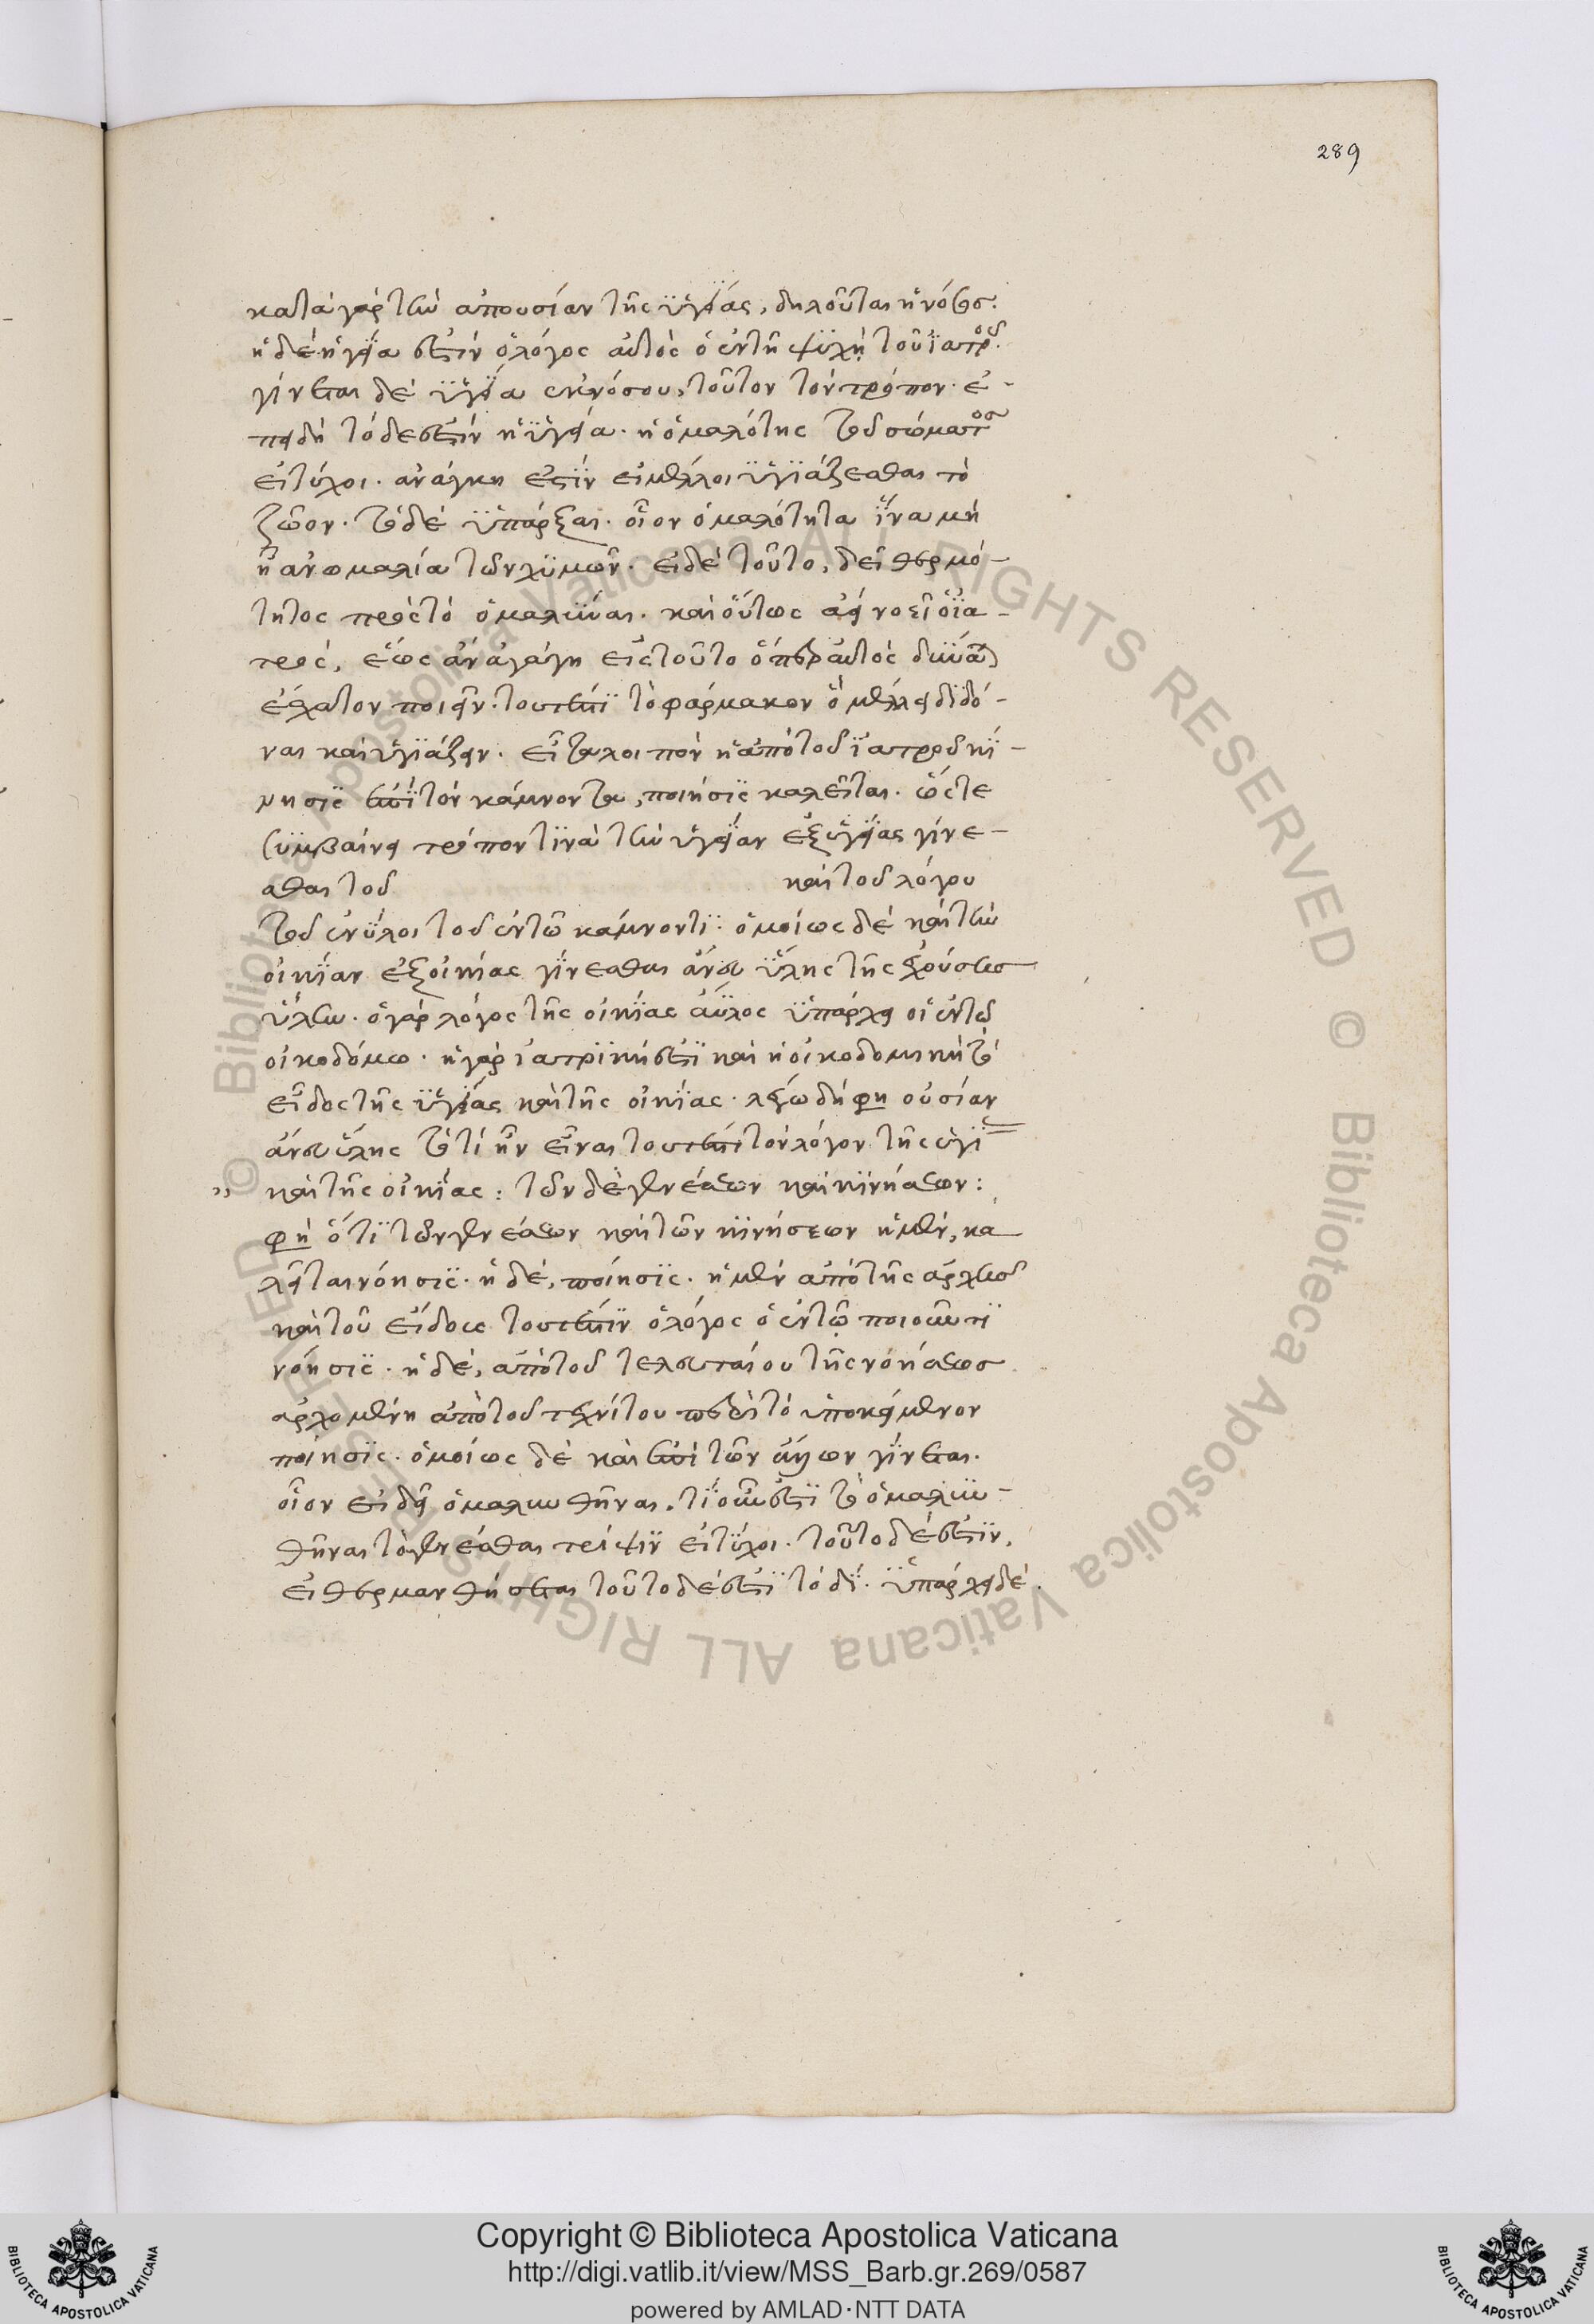 289
κατὰ γὰρ τὴν ἀπουσίαν τῆς ὑγείας, δηλοῦται ἡ νόσος.
ἡ δὲ ὑγεία ἐστὶν ὁ λόγος αὐτὸς ὁ ἐν τῇ ψυχῇ τοῦ ἰατροῦ.
γίνεται δὲ ὑγεία ἐκ νόσου, τοῦτον τὸν τρόπον. ἐ-
πειδὴ τόδε ἐστὶν ἡ ὑγεία. ἡ ὁμαλότης τοῦ σώματος
εἰ τύχοι. ἀνάγκη ἐστὶν εἰ μέλλοι ὑγιάζεσθαι τὸ
ζῶον. τόδε ὑπάρξαι. οἷον ὁμαλότητα ἵνα μὴ
ᾖ ἀνωμαλία τῶν χυμῶν. εἰ δὲ τοῦτο, δεῖ θερμό-
τητος πρὸς τὸ ὁμαλῦναι. καὶ οὕτως ἀεὶ νοεῖ ὁ ἰα-
τρός, ἕως ἂν ἀγάγῃ εἰς τοῦτο ὅπερ αὐτὸς δύναται
ἔσχατον ποιεῖν. τουτέστι τὸ φάρμακον ὃ μέλλει διδό-
ναι καὶ ὑγιάζειν. εἶτα λοιπὸν ἡ ἀπὸ τοῦ ἰατροῦ κί-
νησις ἐπὶ τὸν κάμνοντα, ποίησις καλεῖται. ὥστε
συμβαίνει τρόπον τινὰ τὴν ὑγείαν ἐξ ὑγείας γίνε-
σθαι τοῦ καὶ τοῦ λόγου
τοῦ ἐνύλοι τοῦ ἐν τῷ κάμνοντι. ὁμοίως δὲ καὶ τὴν
οἰκίαν ἐξ οἰκίας γίνεσθαι ἄνευ ὕλης τῆς ἐχούσης
ὕλην. ὁ γὰρ λόγος τῆς οἰκίας ἄϋλος ὑπάρχει ὁ ἐν τῷ
οἰκοδόμω. ἡ γὰρ ἰατρική ἐστι καὶ ἡ οἰκοδομικὴ τὸ
εἶδος τῆς ὑγείας καὶ τῆς οἰκίας. λέγω δή φη οὐσίαν
ἄνευ ὕλης τὸ τί ἦν εἶναι τουτέστι τὸν λόγον τῆς ὑγι
καὶ τῆς οἰκίας : τῶν δὲ γενέσεων καὶ κινήσεων :
φη ὅτι τῶν γενέσεων καὶ τῶν κινήσεων ἡ μὲν, κα
λεῖται νόησις. ἡ δὲ, ποίησις. ἡ μὲν ἀπὸ τῆς ἀρχῆς
καὶ τοῦ εἴδους τουτέστιν ὁ λόγος ὁ ἐν τῷ ποιοῦντι
νόησις. ἡ δὲ, ἀπὸ τοῦ τελευταίου τῆς νοήσεως
ἀρχομένη ἀπὸ τοῦ τεχνίτου περὶ τὸ ὑποκείμενον
ποίησις. ὁμοίως δὲ καὶ ἐπὶ τῶν ἄλλων γίνεται.
οἷον εἰ δεῖ ὁμαλυνθῆναι. τί οὖν ἐστι τὸ ὁμαλυν-
θῆναι τὸ γενέσθαι τρίψιν εἰ τύχοι. τοῦτο δέ ἐστιν,
εἰ θερμανθήσεται τοῦτο δέ ἐστι τὸ δί. ὑπάρχει δὲ.
Copyright © Biblioteca Apostolica Vaticana
http://digi.vatlib.it/view/MSS_Barb.gr.269/0587
powered by AMLAD·NTT DATA